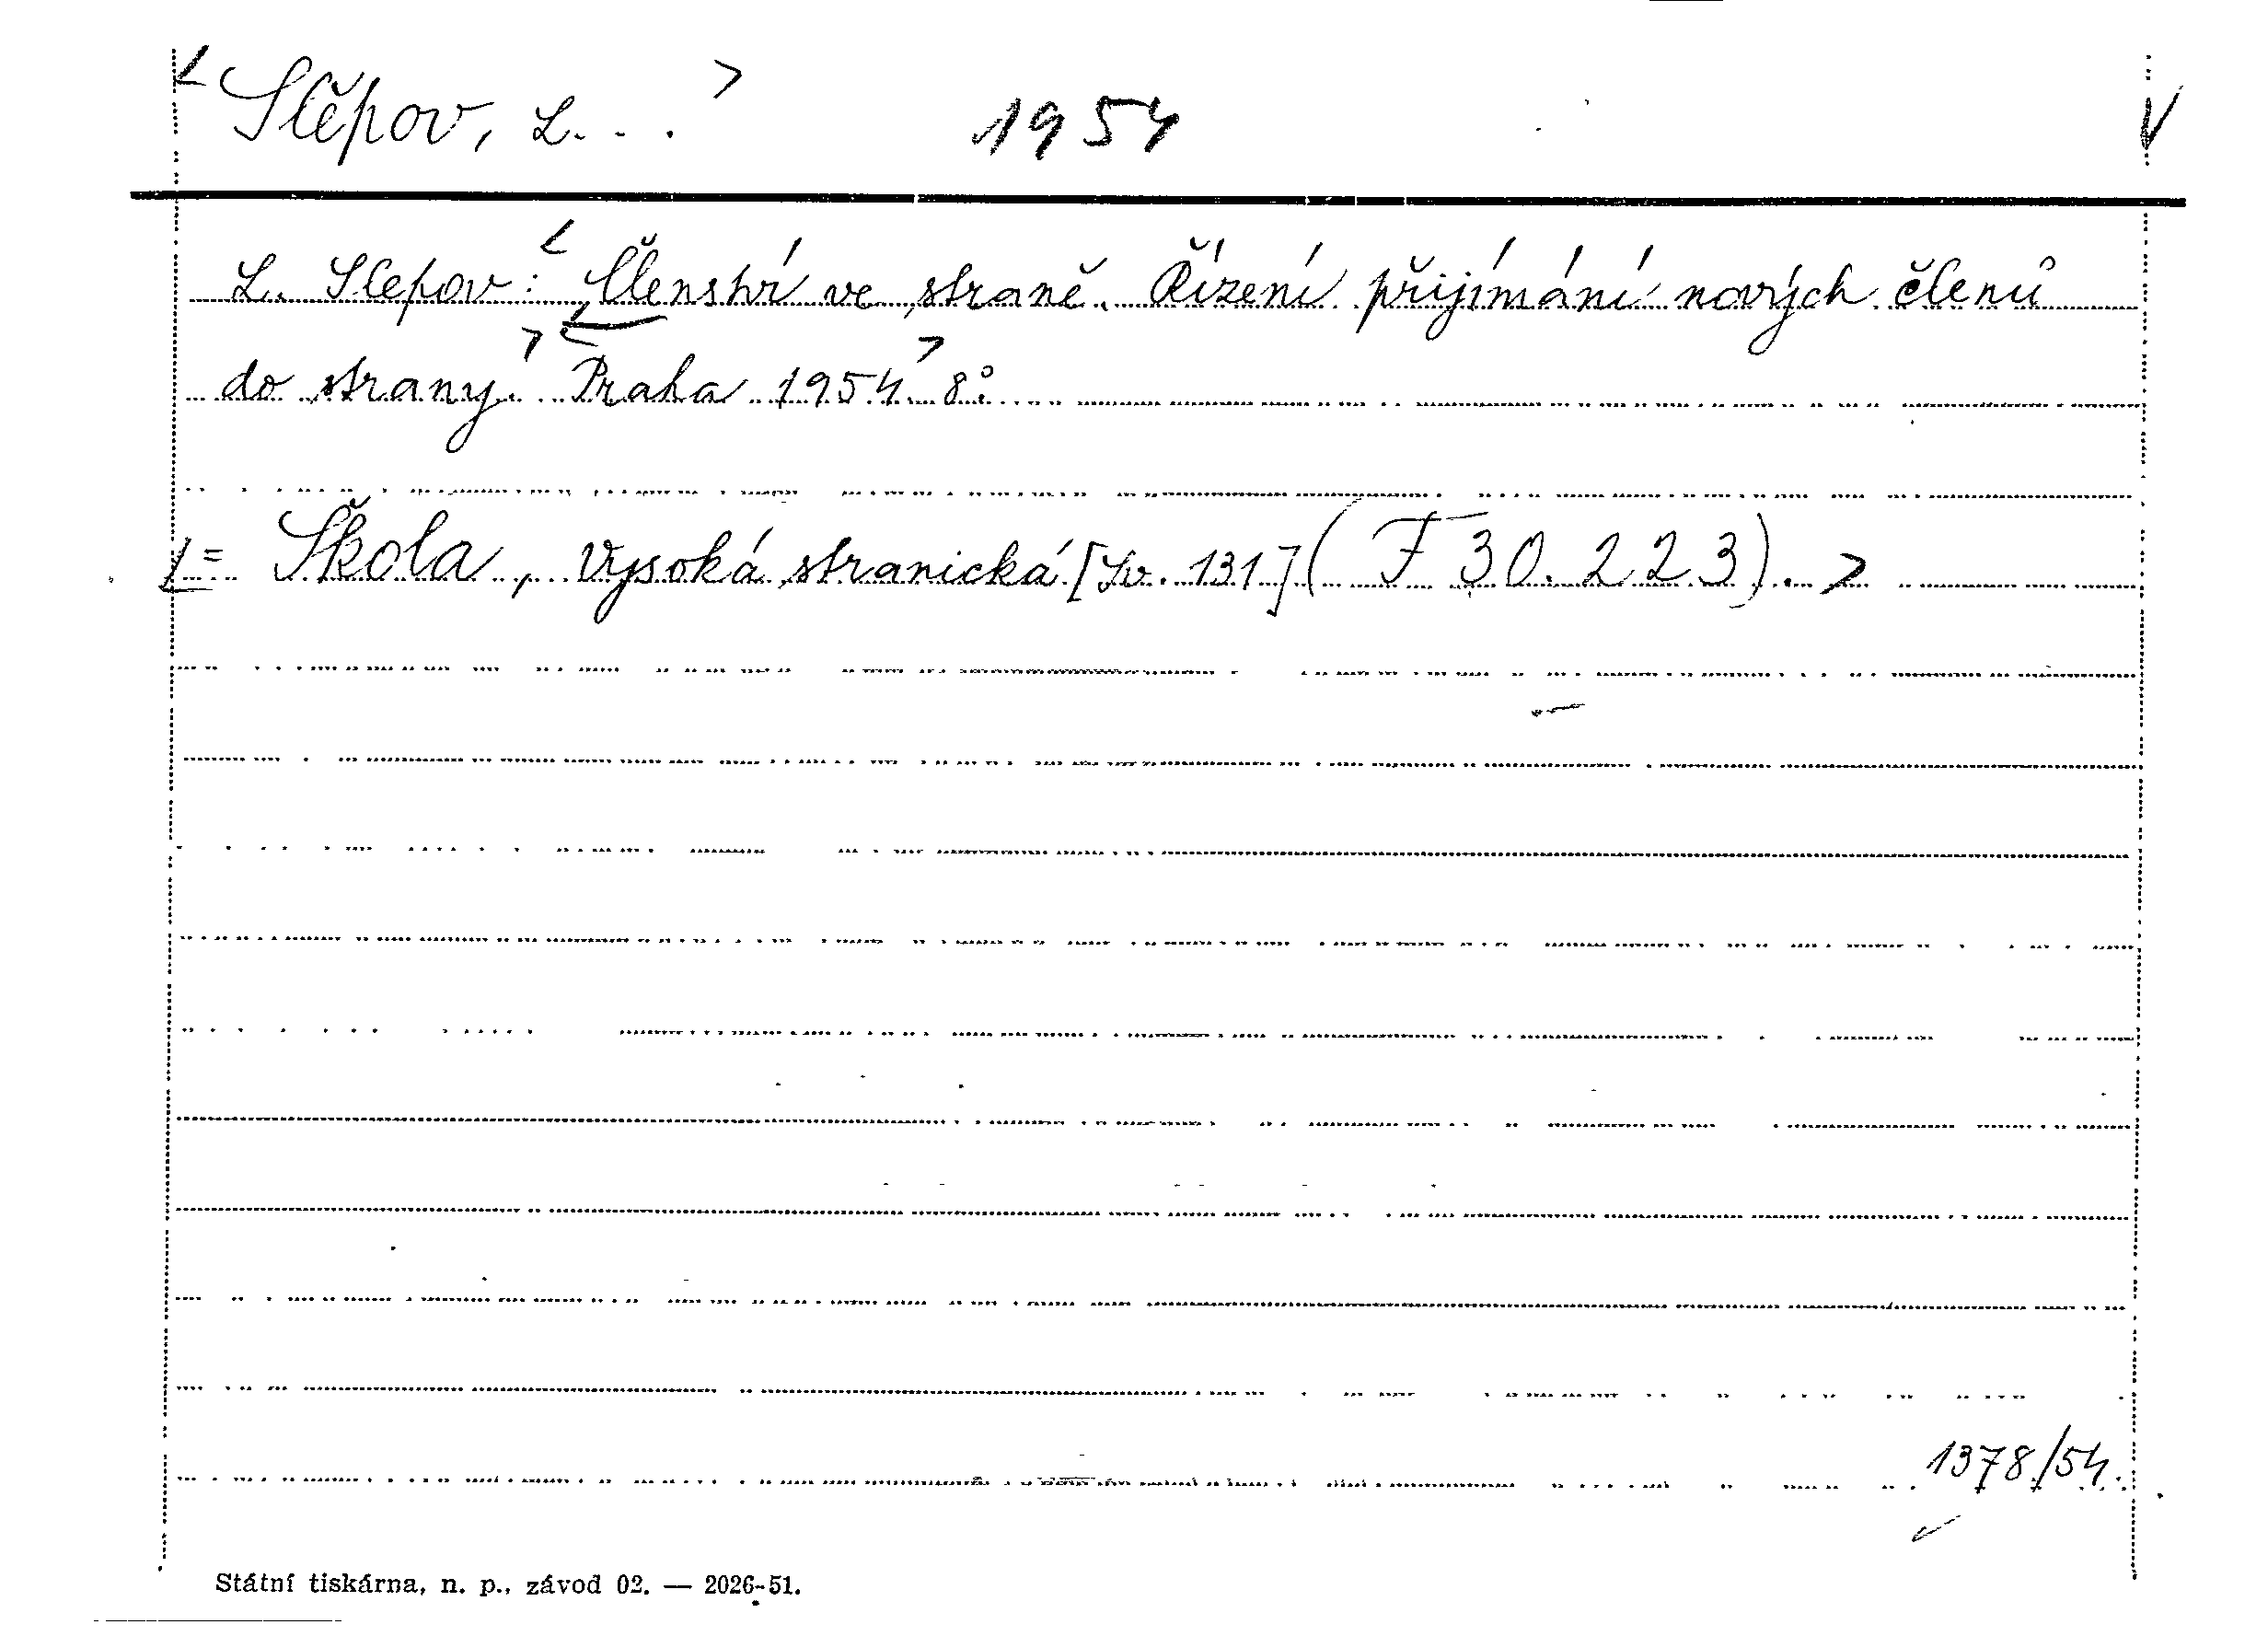 < Slěpov, L... > 1954 V
L. Slepov: < Členství ve straně. Řízení přijímání nových členů
do strany. > < Praha 1954. > 8°.
< = Škola, vysoká stranická [Sv. 131] (F 30.223). >
1378/54.
Státní tiskárna, n. p., závod 02. — 2026-51.